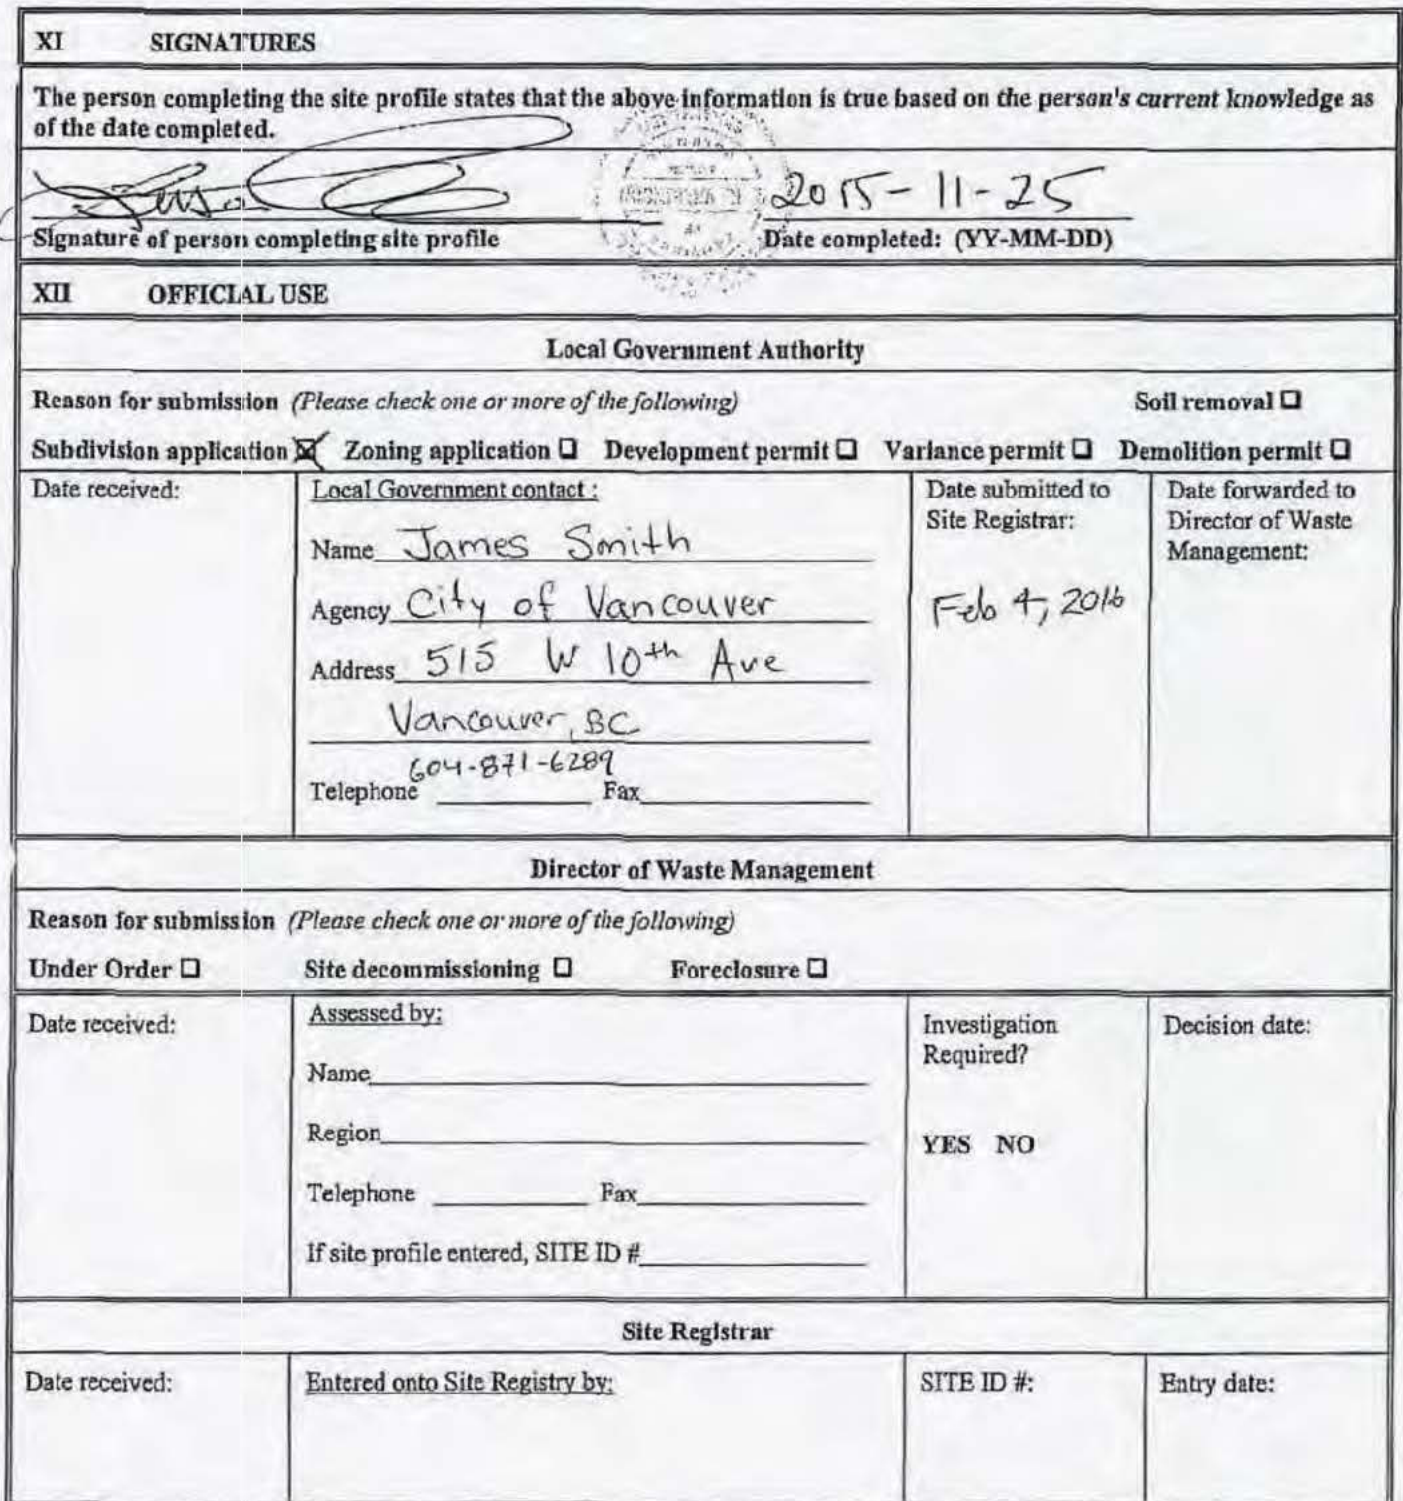 XI SIGNATURES
The person completing the site profile states that the above information is true based on the person's current knowledge as
of the date completed.
2015-11-25
Signature of person completing site profile Date completed: (YY-MM-DD)
XII OFFICIAL USE
Local Government Authority
Reason for submission (Please check one or more of the following) Soil removal ☐
Subdivision application ☒ Zoning application ☐ Development permit ☐ Variance permit ☐ Demolition permit ☐
Date received:
Local Government contact:
Name James Smith
Agency City of Vancouver
Address 515 W 10th Ave
Vancouver, BC
604-871-6289
Telephone Fax
Date submitted to
Site Registrar:
Feb 4, 2016
Date forwarded to
Director of Waste
Management:
Director of Waste Management
Reason for submission (Please check one or more of the following)
Under Order ☐ Site decommissioning ☐ Foreclosure ☐
Date received:
Assessed by:
Name
Region
Telephone Fax
If site profile entered, SITE ID #
Investigation
Required?
YES NO
Decision date:
Site Registrar
Date received:
Entered onto Site Registry by:
SITE ID #:
Entry date: